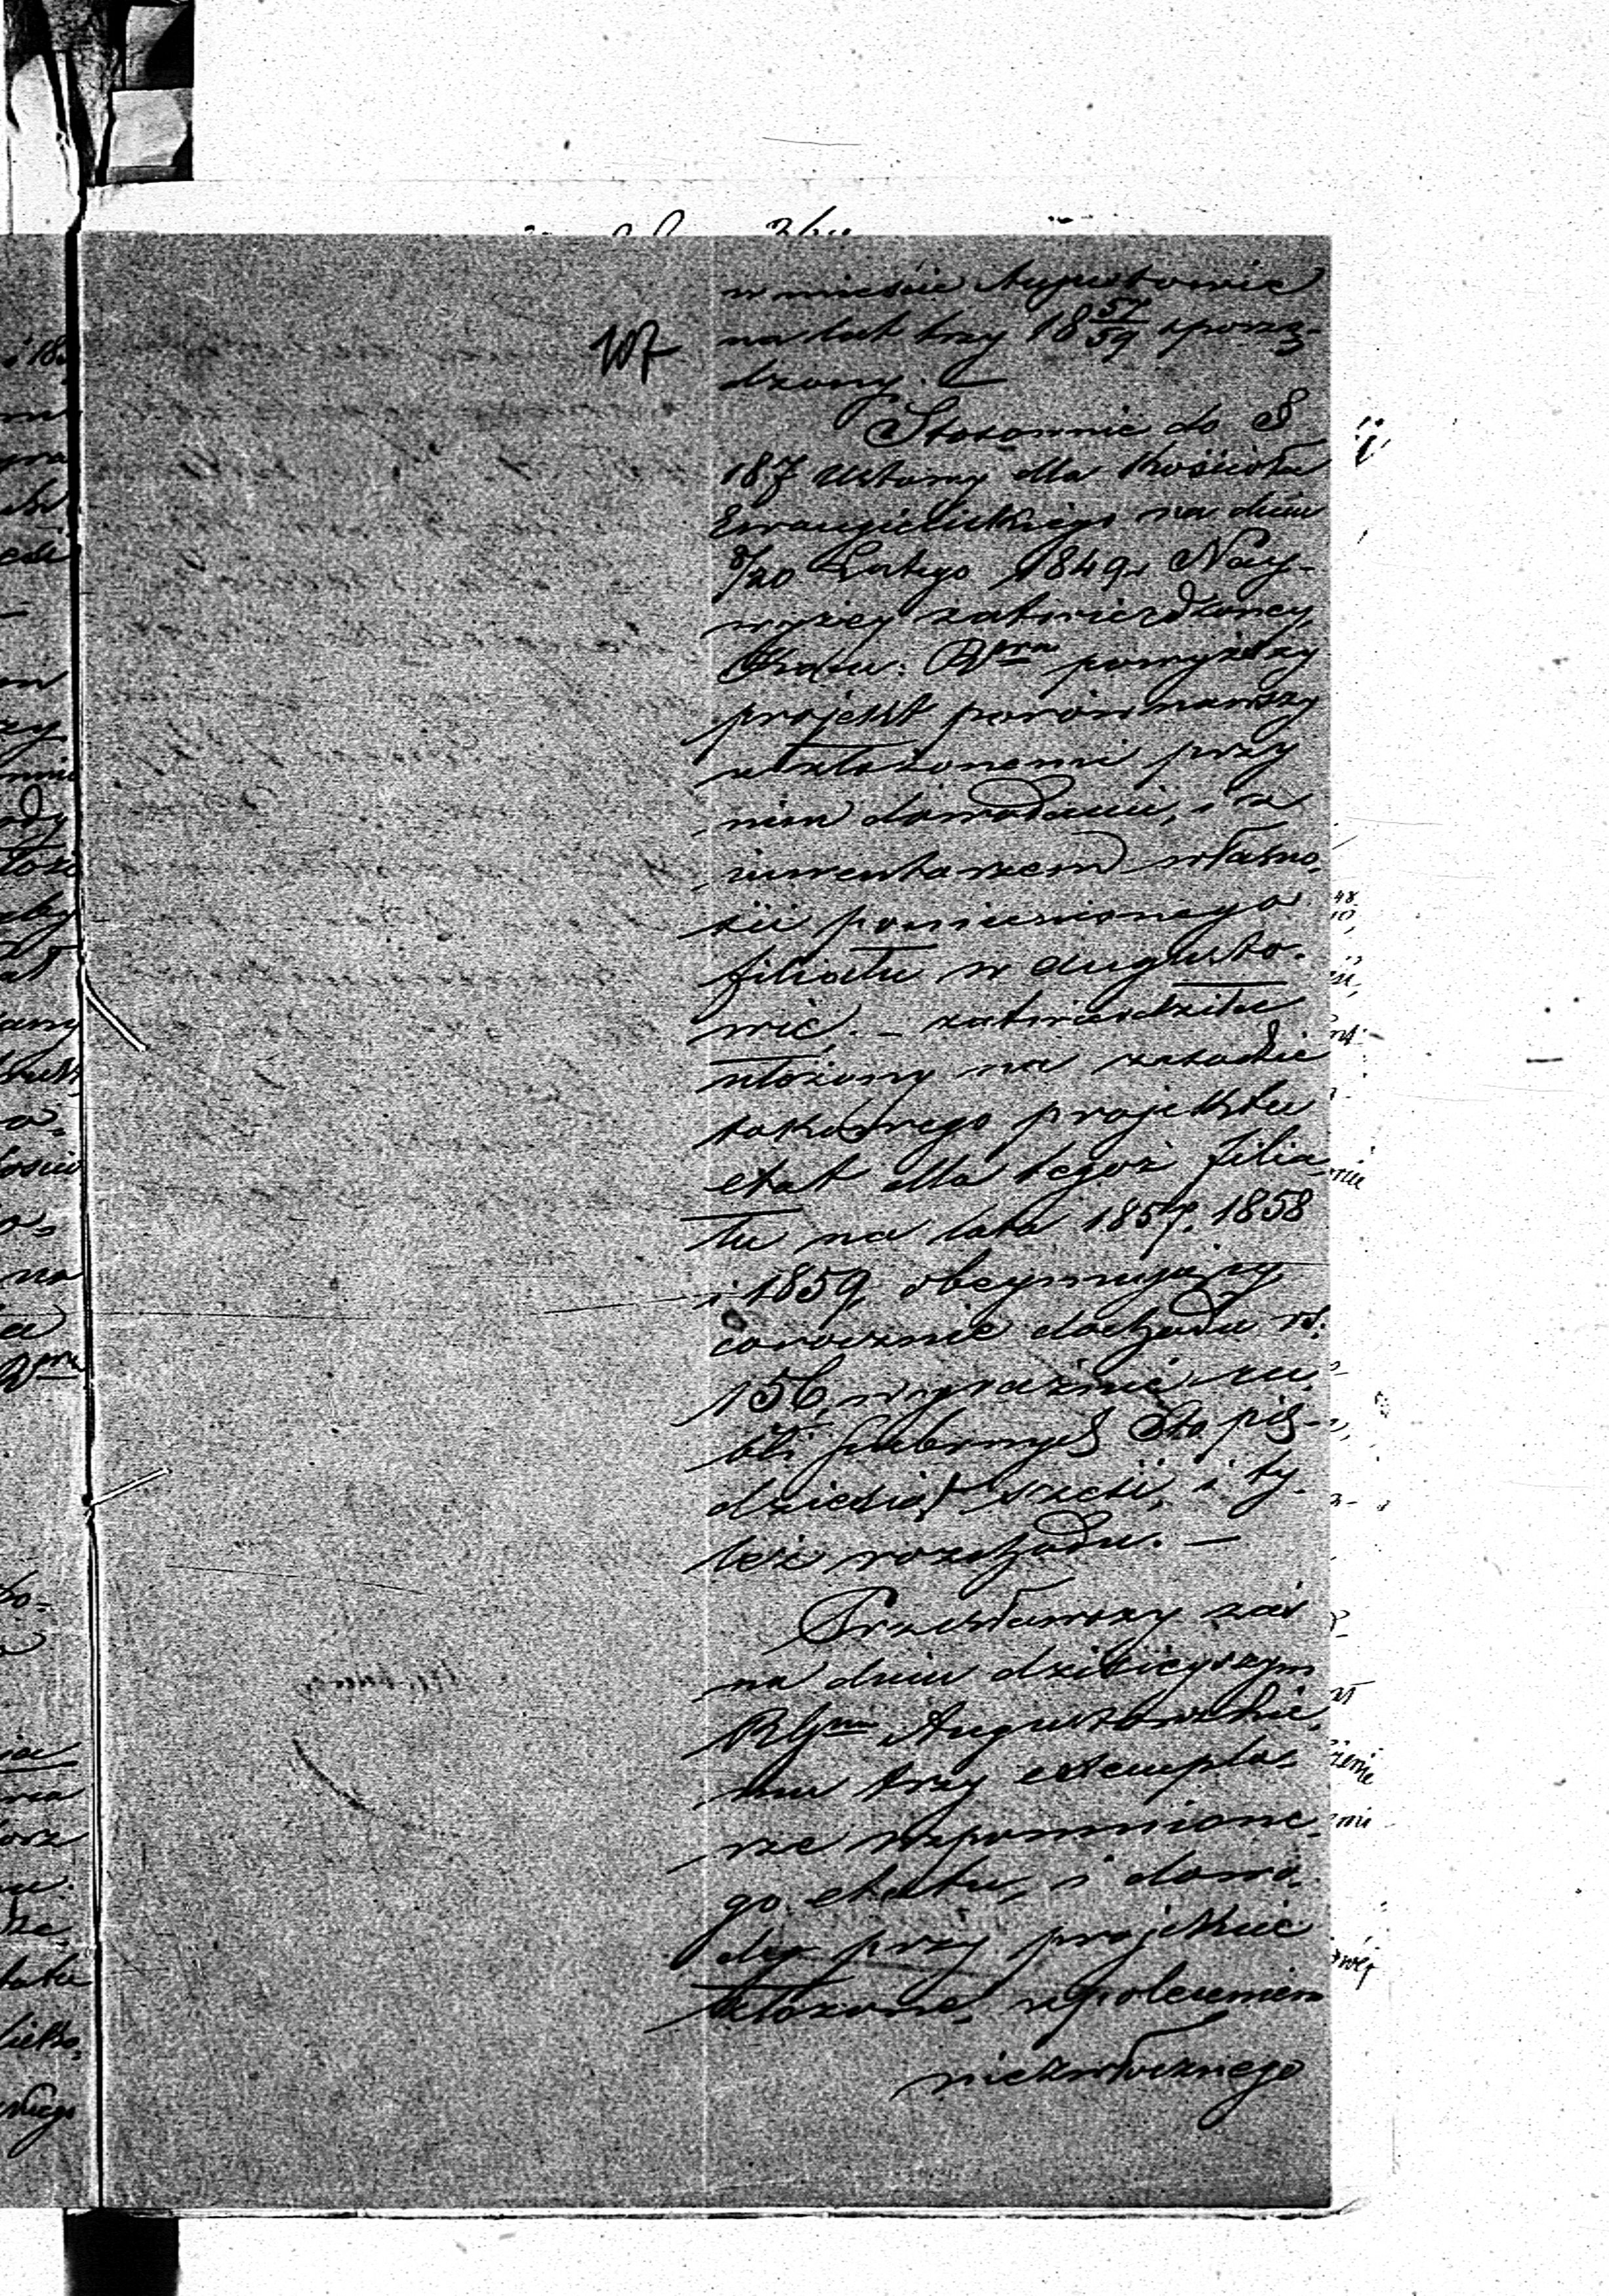 w mieście Augustowie
107 na lat trzy 18 57/59 sporzą-
dzony. —
Stosownie do §
187 Ustawy dla Kościoła
Ewangielickiego na dniu
8/20 Lutego 1849 r. Nay-
wyżey zatwierdzoney,
powyższy
projekt porównawszy
z złożonemi przy
nim dowodami, i z
inwentarzem własno-
ści pomienionego
filiału w Augusto-
wie, — zatwierdziła
ułożony na zasadzie
takowego projektu
etat dla tegoż filia-
łu na lata 1857, 1858
i 1859, obeymujący
corocznie dochodu rs.
156, wyraźnie ru-
bli srebrnych Sto pięć-
dziesiąt sześć, i ty-
leż rozchodu. —
Przesławszy zaś
na dniu dzisieyszym
Augustowskie-
mu trzy exempla-
rze wspomnione-
go etatu, i dowo-
dy przy projekcie
złożone, z poleceniem
niezwłocznego